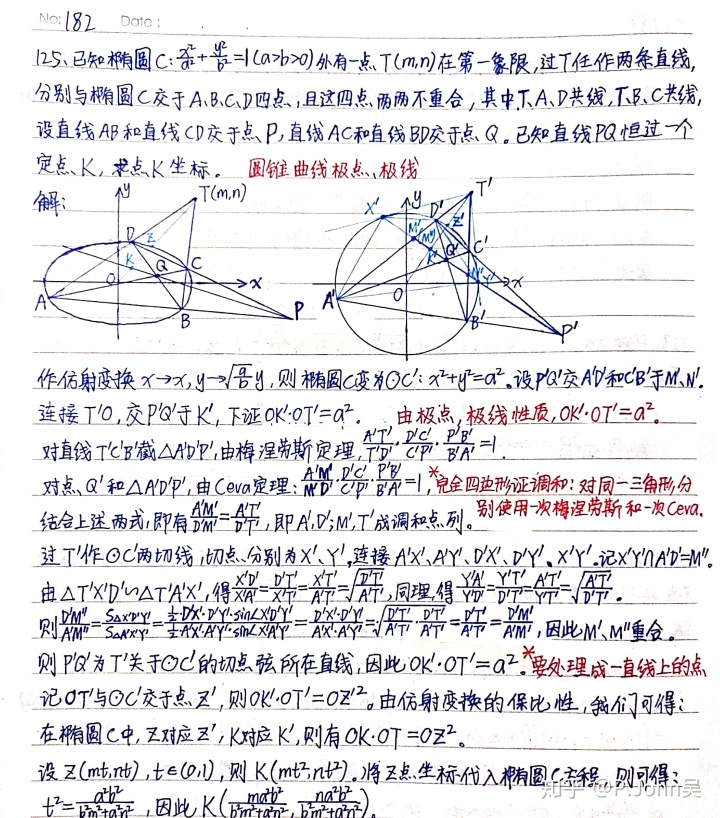 No: 182 Date:
125. 已知椭圆C: x²/a² + y²/b² = 1 (a>b>0) 外有一点T(m,n)在第一象限, 过T任作两条直线,
分别与椭圆C交于A、B、C、D四点, 且这四点两两不重合, 其中T、A、D共线, T、B、C共线,
设直线AB和直线CD交于点P, 直线AC和直线BD交于点Q。已知直线PQ恒过一个
定点K, 求点K坐标。 圆锥曲线极点、极线
解:
y T(m,n) D Z K Q C O x A B P
y T' X' D' Z' M' M'' K' Q' C' O N' Y' x A' B' P'
作仿射变换 x→x, y→√(a/b) y, 则椭圆C变为⊙C': x²+y²=a²。设P'Q'交A'D'和C'B'于M'、N'.
连接T'O, 交P'Q'于K', 下证OK'·OT'=a². 由极点, 极线性质, OK'·OT'=a².
对直线T'C'B'截△A'D'P', 由梅涅劳斯定理, A'T'/T'D' · D'C'/C'P' · P'B'/B'A' = 1.
对点Q'和△A'D'P', 由Ceva定理: A'M'/M'D' · D'C'/C'P' · P'B'/B'A' = 1, *完全四边形证调和: 对同一三角形分
别使用一次梅涅劳斯和一次Ceva.
结合上述两式, 即有 A'M'/D'M' = A'T'/D'T', 即A', D'; M', T'成调和点列。
过T'作⊙C'两切线, 切点分别为X'、Y', 连接A'X'、A'Y'、D'X'、D'Y'、X'Y'. 记X'Y'∩A'D'=M''.
由△T'X'D'∽△T'A'X', 得 X'D'/X'A' = D'T'/X'T' = X'T'/A'T' = √(D'T'/A'T'), 同理, 得 Y'A'/Y'D' = Y'T'/D'T' = A'T'/Y'T' = √(A'T'/D'T').
则 D'M''/A'M'' = S△X'D'Y'/S△A'X'Y' = ½·D'X'·D'Y'·sin∠X'D'Y' / ½·A'X'·A'Y'·sin∠X'A'Y' = D'X'·D'Y'/A'X'·A'Y' = √(D'T'/A'T' · D'T'/A'T') = D'T'/A'T' = D'M'/A'M', 因此M'、M''重合。
则P'Q'为T'关于⊙C'的切点弦所在直线, 因此OK'·OT'=a². *要处理成一直线上的点
记OT'与⊙C'交于点Z', 则OK'·OT'=OZ'². 由仿射变换的保比性, 我们可得:
在椭圆C中, Z对应Z', K对应K', 则有OK·OT=OZ².
设Z(mt,nt), t∈(0,1), 则K(mt²,nt²). 将Z点坐标代入椭圆C方程, 则可得:
t² = a²b²/(b²m²+a²n²), 因此K(ma²b²/(b²m²+a²n²), na²b²/(b²m²+a²n²)).
知乎 @P.John吴